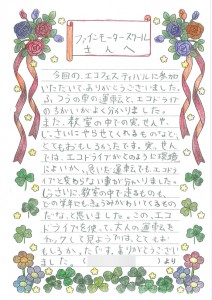 ファインモータースクール
さんへ
今回の、エコフェスティバルに参加
いただいてありがとうございました。
ふつうの車の運転と、エコドライブ
のちがいがよく分かりました。
また、教室の中での実せんや、
じっさいにやらせてくれるものなど、
とてもおもしろかったです。実せん
では、エコドライブがどのように環境
によいか、急いだ運転でも、エコドライ
ブと変わらない事が分かりました。
さらに、教室の中で走るものも、
どの学年にもきょうみがわいてくるもの
だなと思いました。この、エコ
ドライブを使って、大人の運転を
チェックして見ようです。とても
もしろかったです。ありがとうござい
ました。
より